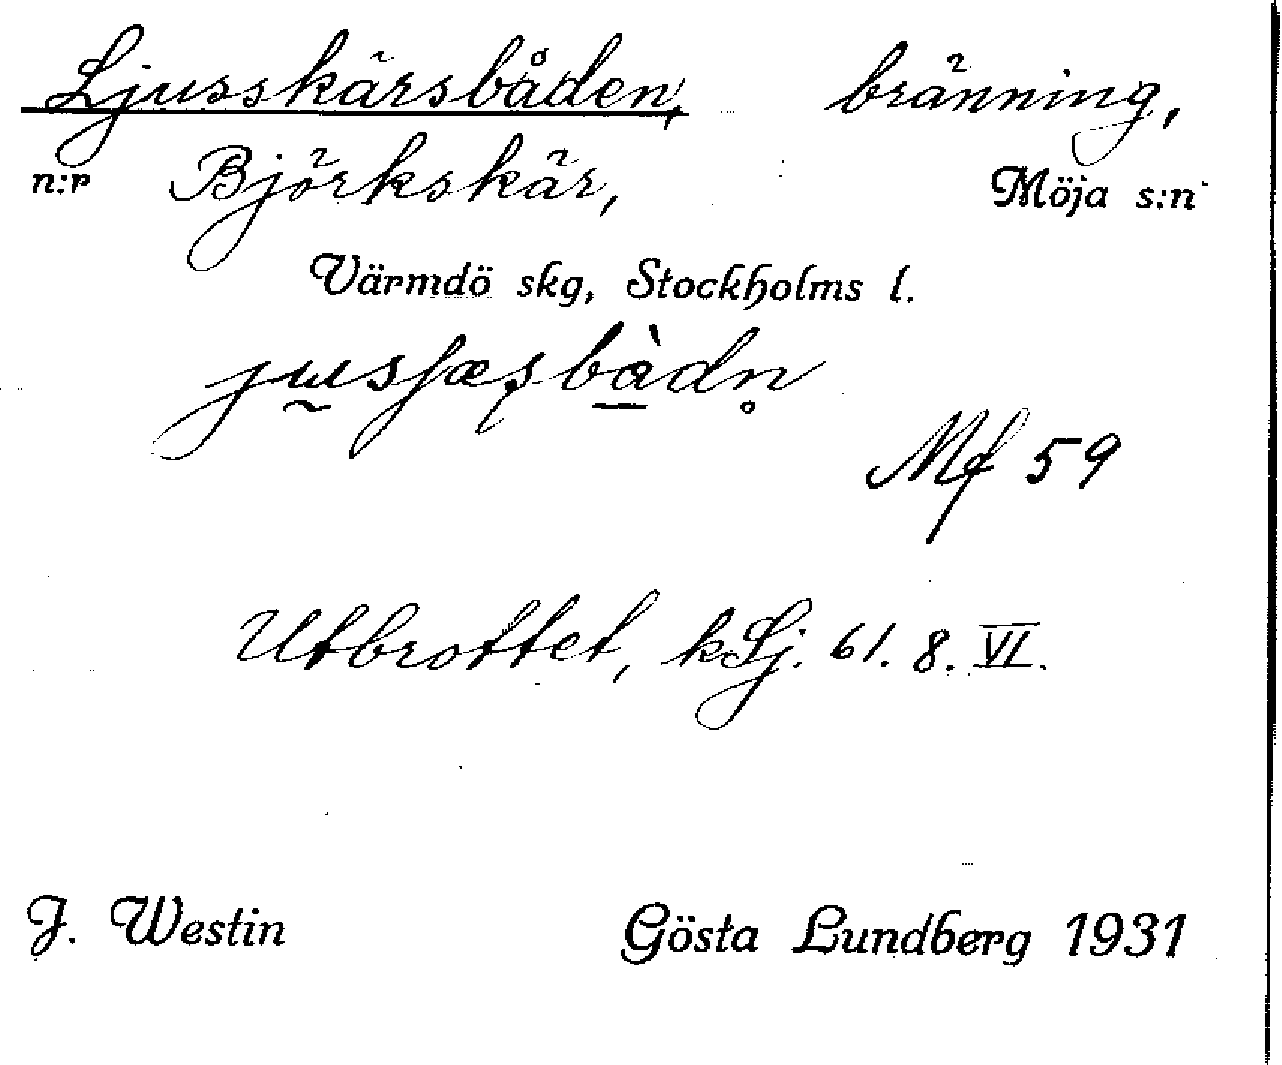 Ljusskärsbåden, bränning,
n:r Björkskär, Möja s:n
Värmdö skg, Stockholms l.
Mf 59
Utbrottet, kLj. 61. 8. VI.
J. Westin Gösta Lundberg 1931